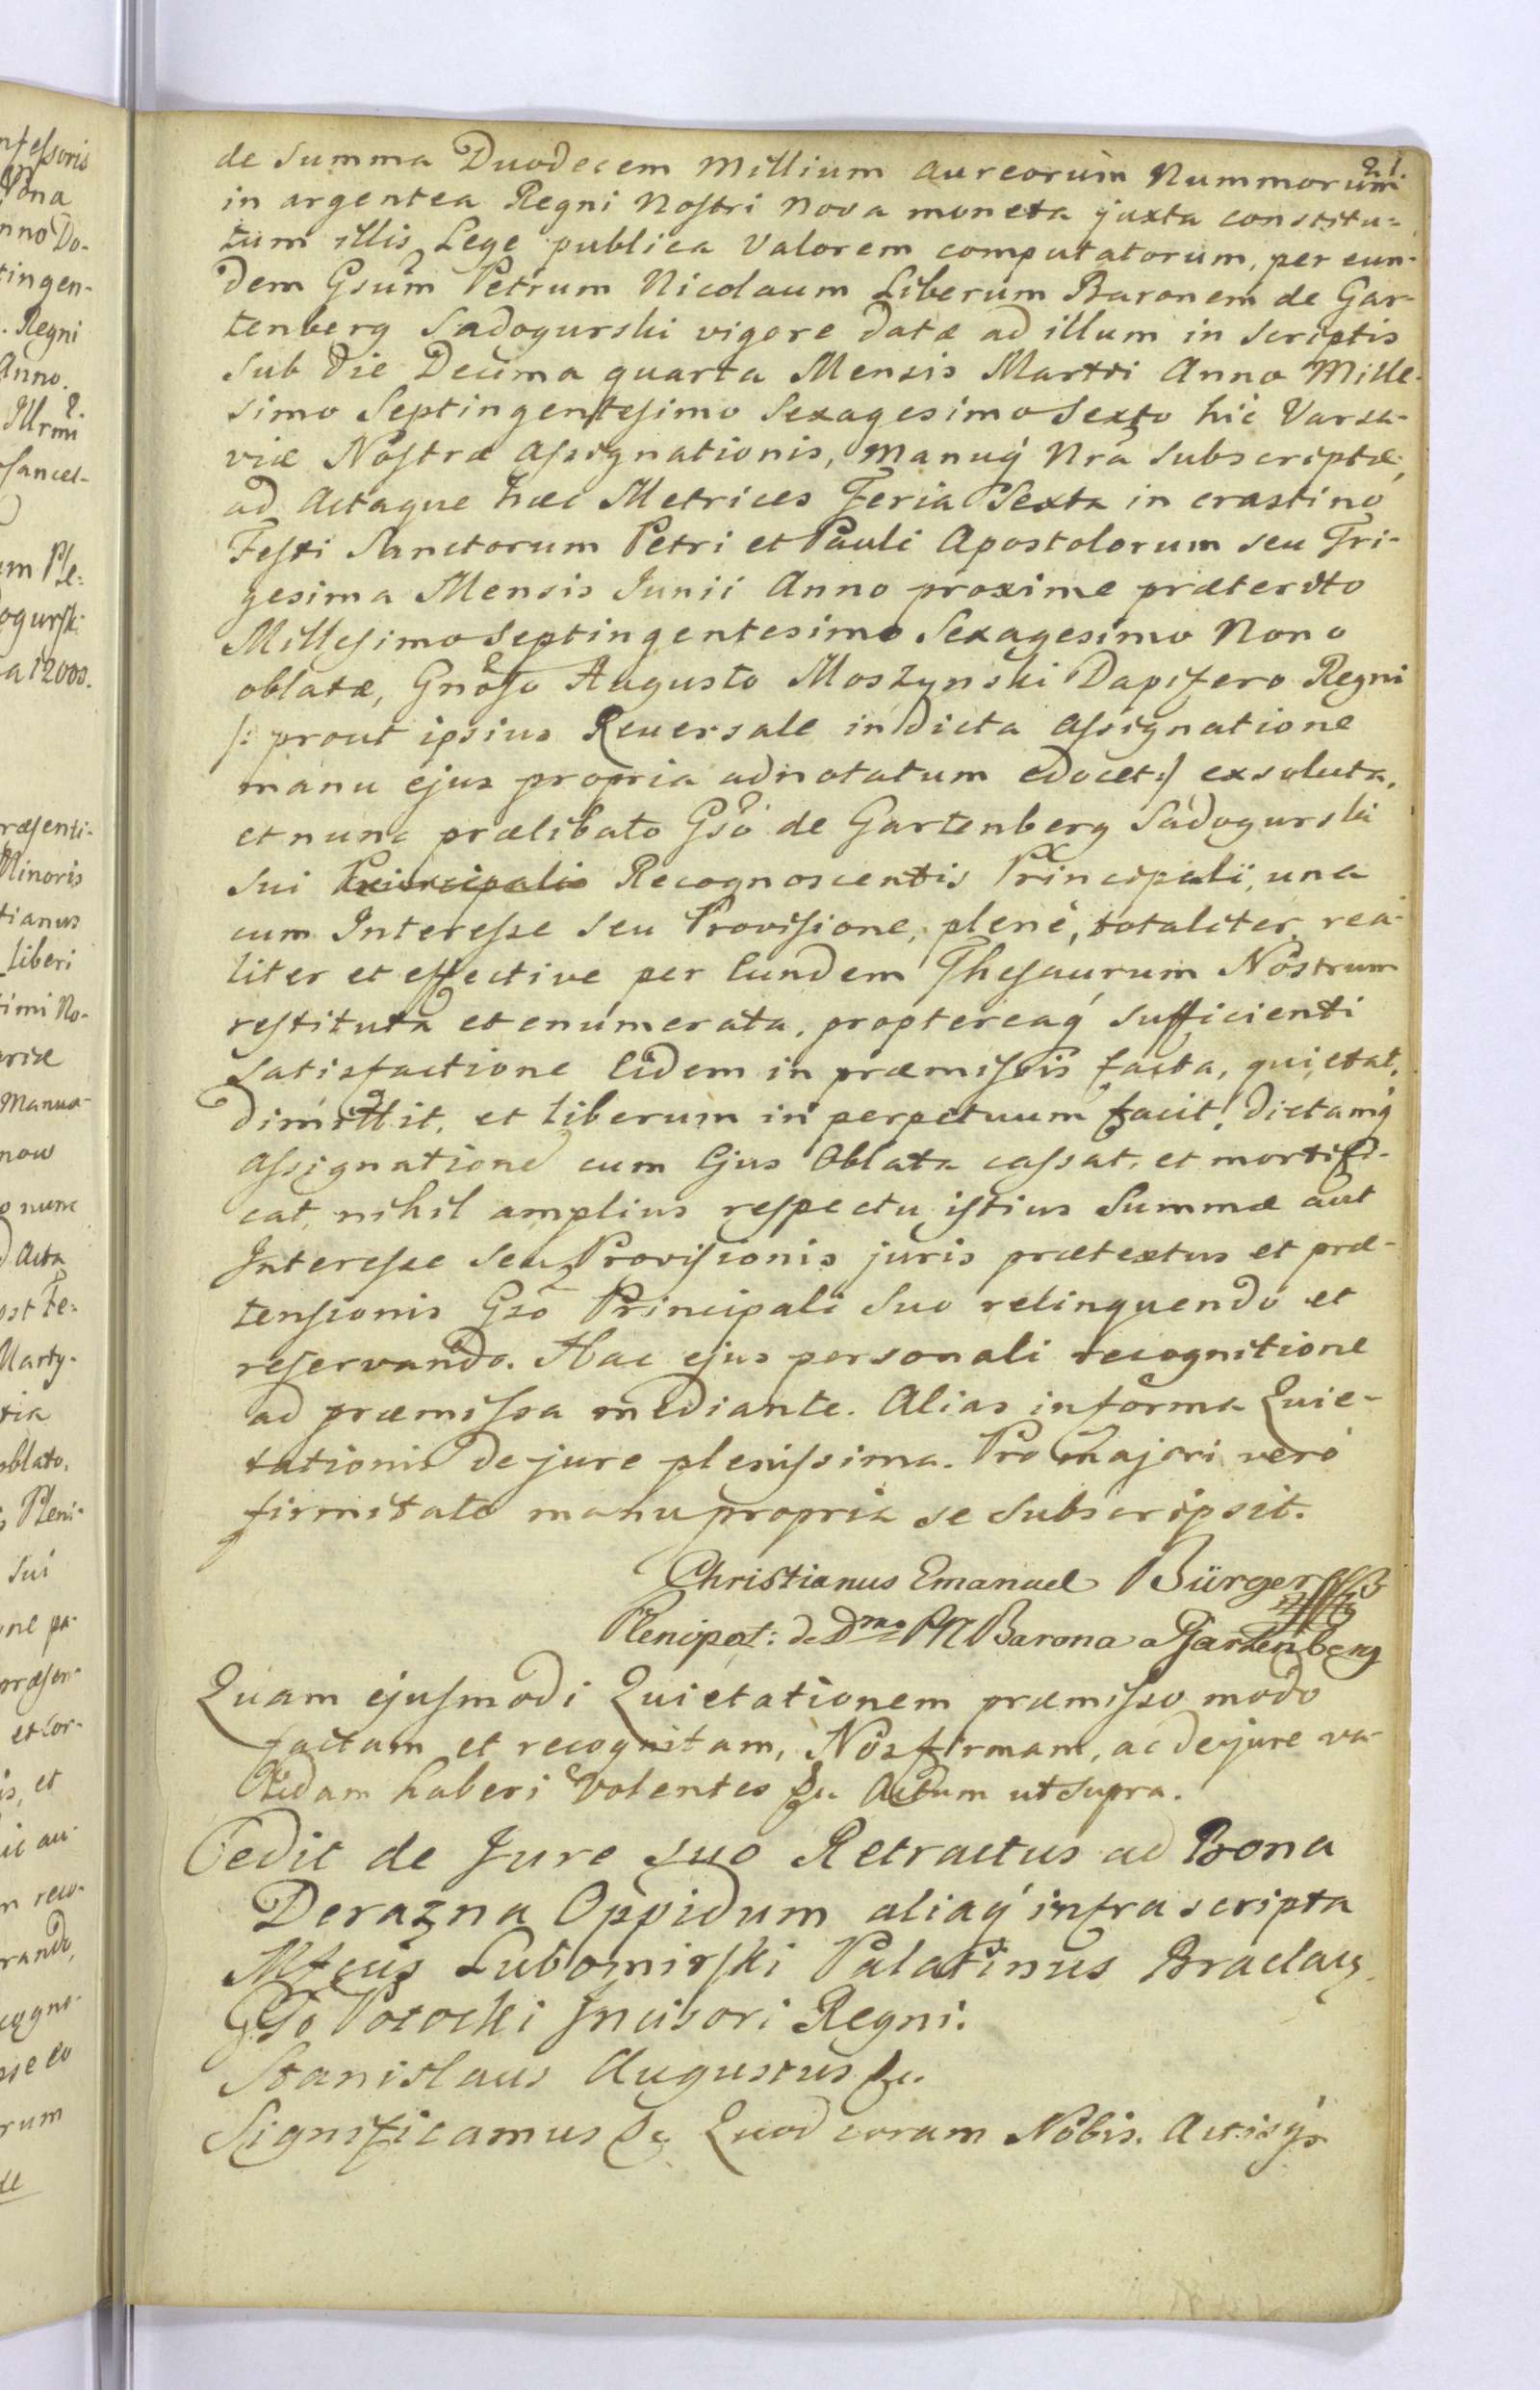 21.
de Summa Duodecem Millium Aureorum Nummorum
in argentea Regni Nostri nova moneta juxta constitu=
tum illis Lege publica Valorem computatorum, per eun-
dem Gsum Petrum Nicolaum Liberum Baronem de Gar-
tenberg Sadogurski vigore datæ ad illum in Scriptis
sub die Decima quarta Mensis Martii Anno Mille-
simo Septingentesimo Sexagesimo Sexto hic Varsa-
viæ Nostræ Assignationis, manuq́ Nrâ subscriptæ,
ad Actaque hæc Metrices Feria Sexta in crastino
Festi Sanctorum Petri et Pauli Apostolorum seu Tri-
gesima Mensis Junii Anno proxime præterito
Millesimo Septingentesimo Sexagesimo Nono
oblatæ, Gnoso Augusto Moszynski Dapifero Regni
/: prout ipsius Reversale in dicta Assignatione
manu ejus propria adnotatum edocet :/ exsoluta,
et nunc prælibato Gso de Gartenberg Sadogurski
sui Principalis Recognoscentis Principali, una
cum Interesse seu Provisione, plenè, totaliter, rea-
liter et effective per Eundem Thesaurum Nostrum
restituta et enumerata, proptereaq́ sufficienti
satisfactione Eidem in præmissis facta, quietat,
dimittit, et liberum in perpetuum facit, dictamq́
Assignatione cum Ejus Oblata cassat, et mortifi-
cat, nihil amplius respectu istius Summæ aut
Interesse seu Provisionis juris prætextus et præ-
tensionis Gso Principali Suo relinquendo et
reservando. Hac ejus personali recognitione
ad præmissa mediante. Alias in forma Quie-
tationis de jure plenissima. Pro majori verò
firmitate manu propria se subscripsit.
Christianus Emanuel Bürger
Plenipot: de Dno PN Barona a Gartenberg
Quam ejusmodi Quietationem præmisso modo
factam et recognitam, Nos firmam, ac de jure va-
lidam haberi volentes &c. Actum ut supra.
Cedit de Jure suo Retractus ad Bona
Derazna Oppidum aliaq́ infrascripta
Mfcus Lubomirski Palatinus Braclav.
Gso Potocki Incisori Regni.
Stanislaus Augustus &c.
Significamus &c. Quod coram Nobis, Actisq́